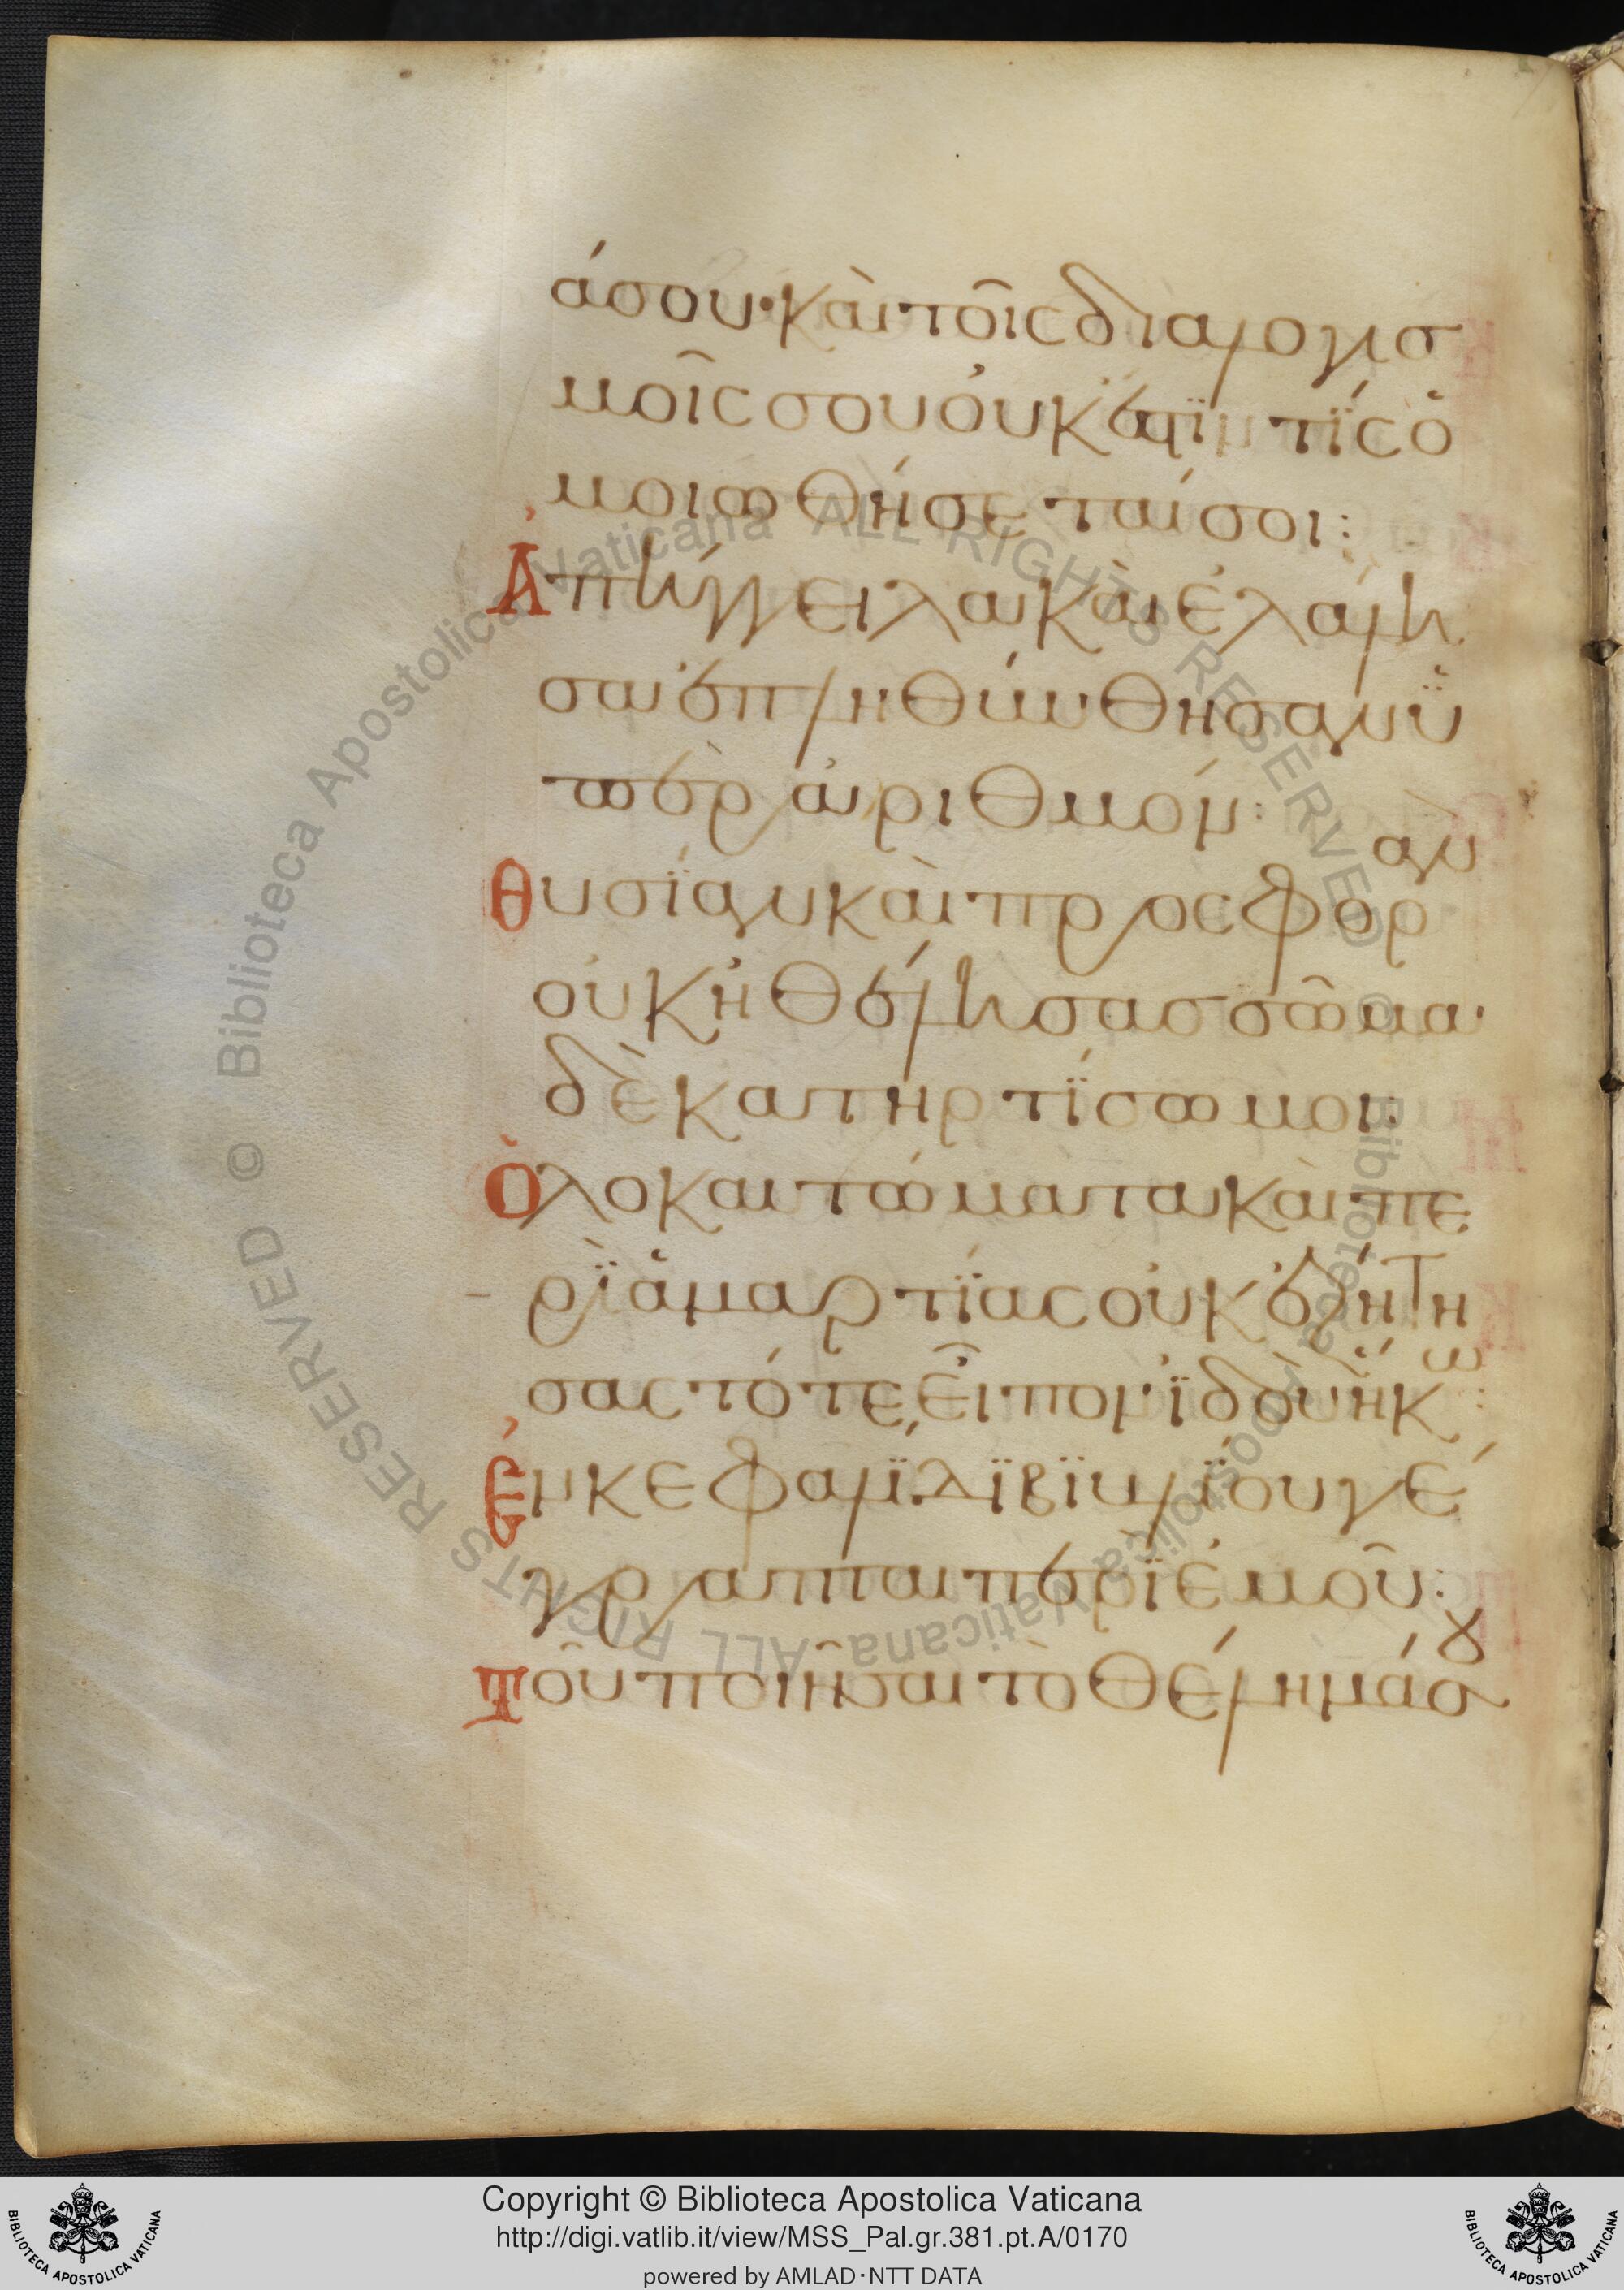 άσου· καὶ τοῖς διαλογισ
μοῖς σου οὐκ ἔστϊν τΐς ὁ
μοιωθήσεταί σοι:
Ἀπήγγειλα καὶ ἐλάλη
σα ἐπληθύνθησαν ϋ̓
πὲρ ἀριθμόν:
Θυσΐαν καὶ προσφορ
ὰν
οὐκ ἠθέλησας σῶμα
δὲ κατηρτΐσω μοι:
Ὁλοκαυτώματα καὶ πε
ρῒ ἁμαρτΐας οὐκ ἐζήτη
σας τότε εἶπον ϊδοὺ ἥκ
ω:
Ἐν κεφαλΐδϊ βϊβλΐου γέ
γραπται περῒ ἐμοῦ:
Τοῦ ποιῆσαι τὸ θέλημά σ
ου
© Biblioteca Apostolica Vaticana ALL RIGHTS RESERVED © Biblioteca Apostolica Vaticana ALL RIGHTS RESERVED
Copyright © Biblioteca Apostolica Vaticana
http://digi.vatlib.it/view/MSS_Pal.gr.381.pt.A/0170
powered by AMLAD·NTT DATA
BIBLIOTECA APOSTOLICA VATICANA
BIBLIOTECA APOSTOLICA VATICANA